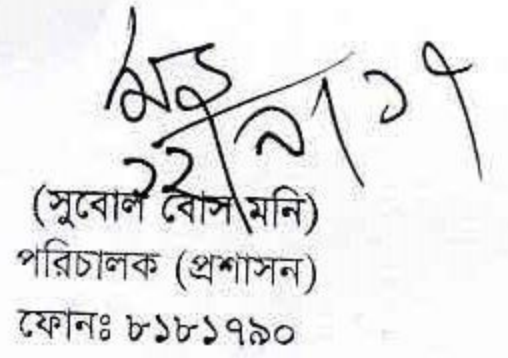 ১২/৯/১৭
(সুবোল বোস মনি)
পরিচালক (প্রশাসন)
ফোনঃ ৮১৮১৭৯০